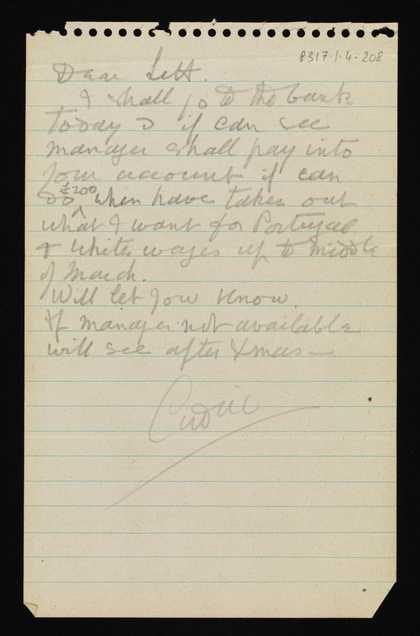 8317·1·4-208
Dear Lett.
I shall go to the bank
today & if can see
manager shall pay into
your account if can
do £200 when have taken out
what I want for Portugal
& Whites wages up to middle
of March.
Will let you know.
If manager not available
will see after Xmas—